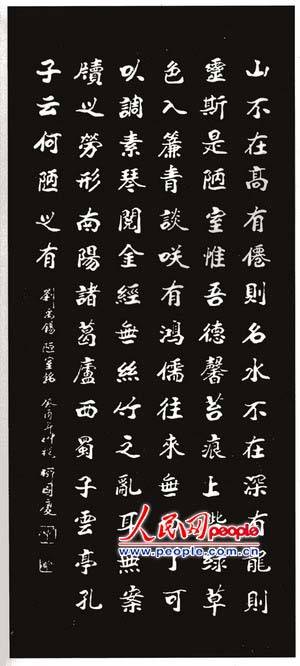 山不在高有僊則名水不在深有龍則
靈斯是陋室惟吾德馨苔痕上階綠草
色入簾青談咲有鴻儒往來無白丁可
以調素琴閱金經無絲竹之亂耳無案
牘之勞形南陽諸葛廬西蜀子雲亭孔
子云何陋之有
劉禹錫陋室銘 癸酉年仲秋
人民网
www.people.com.cn